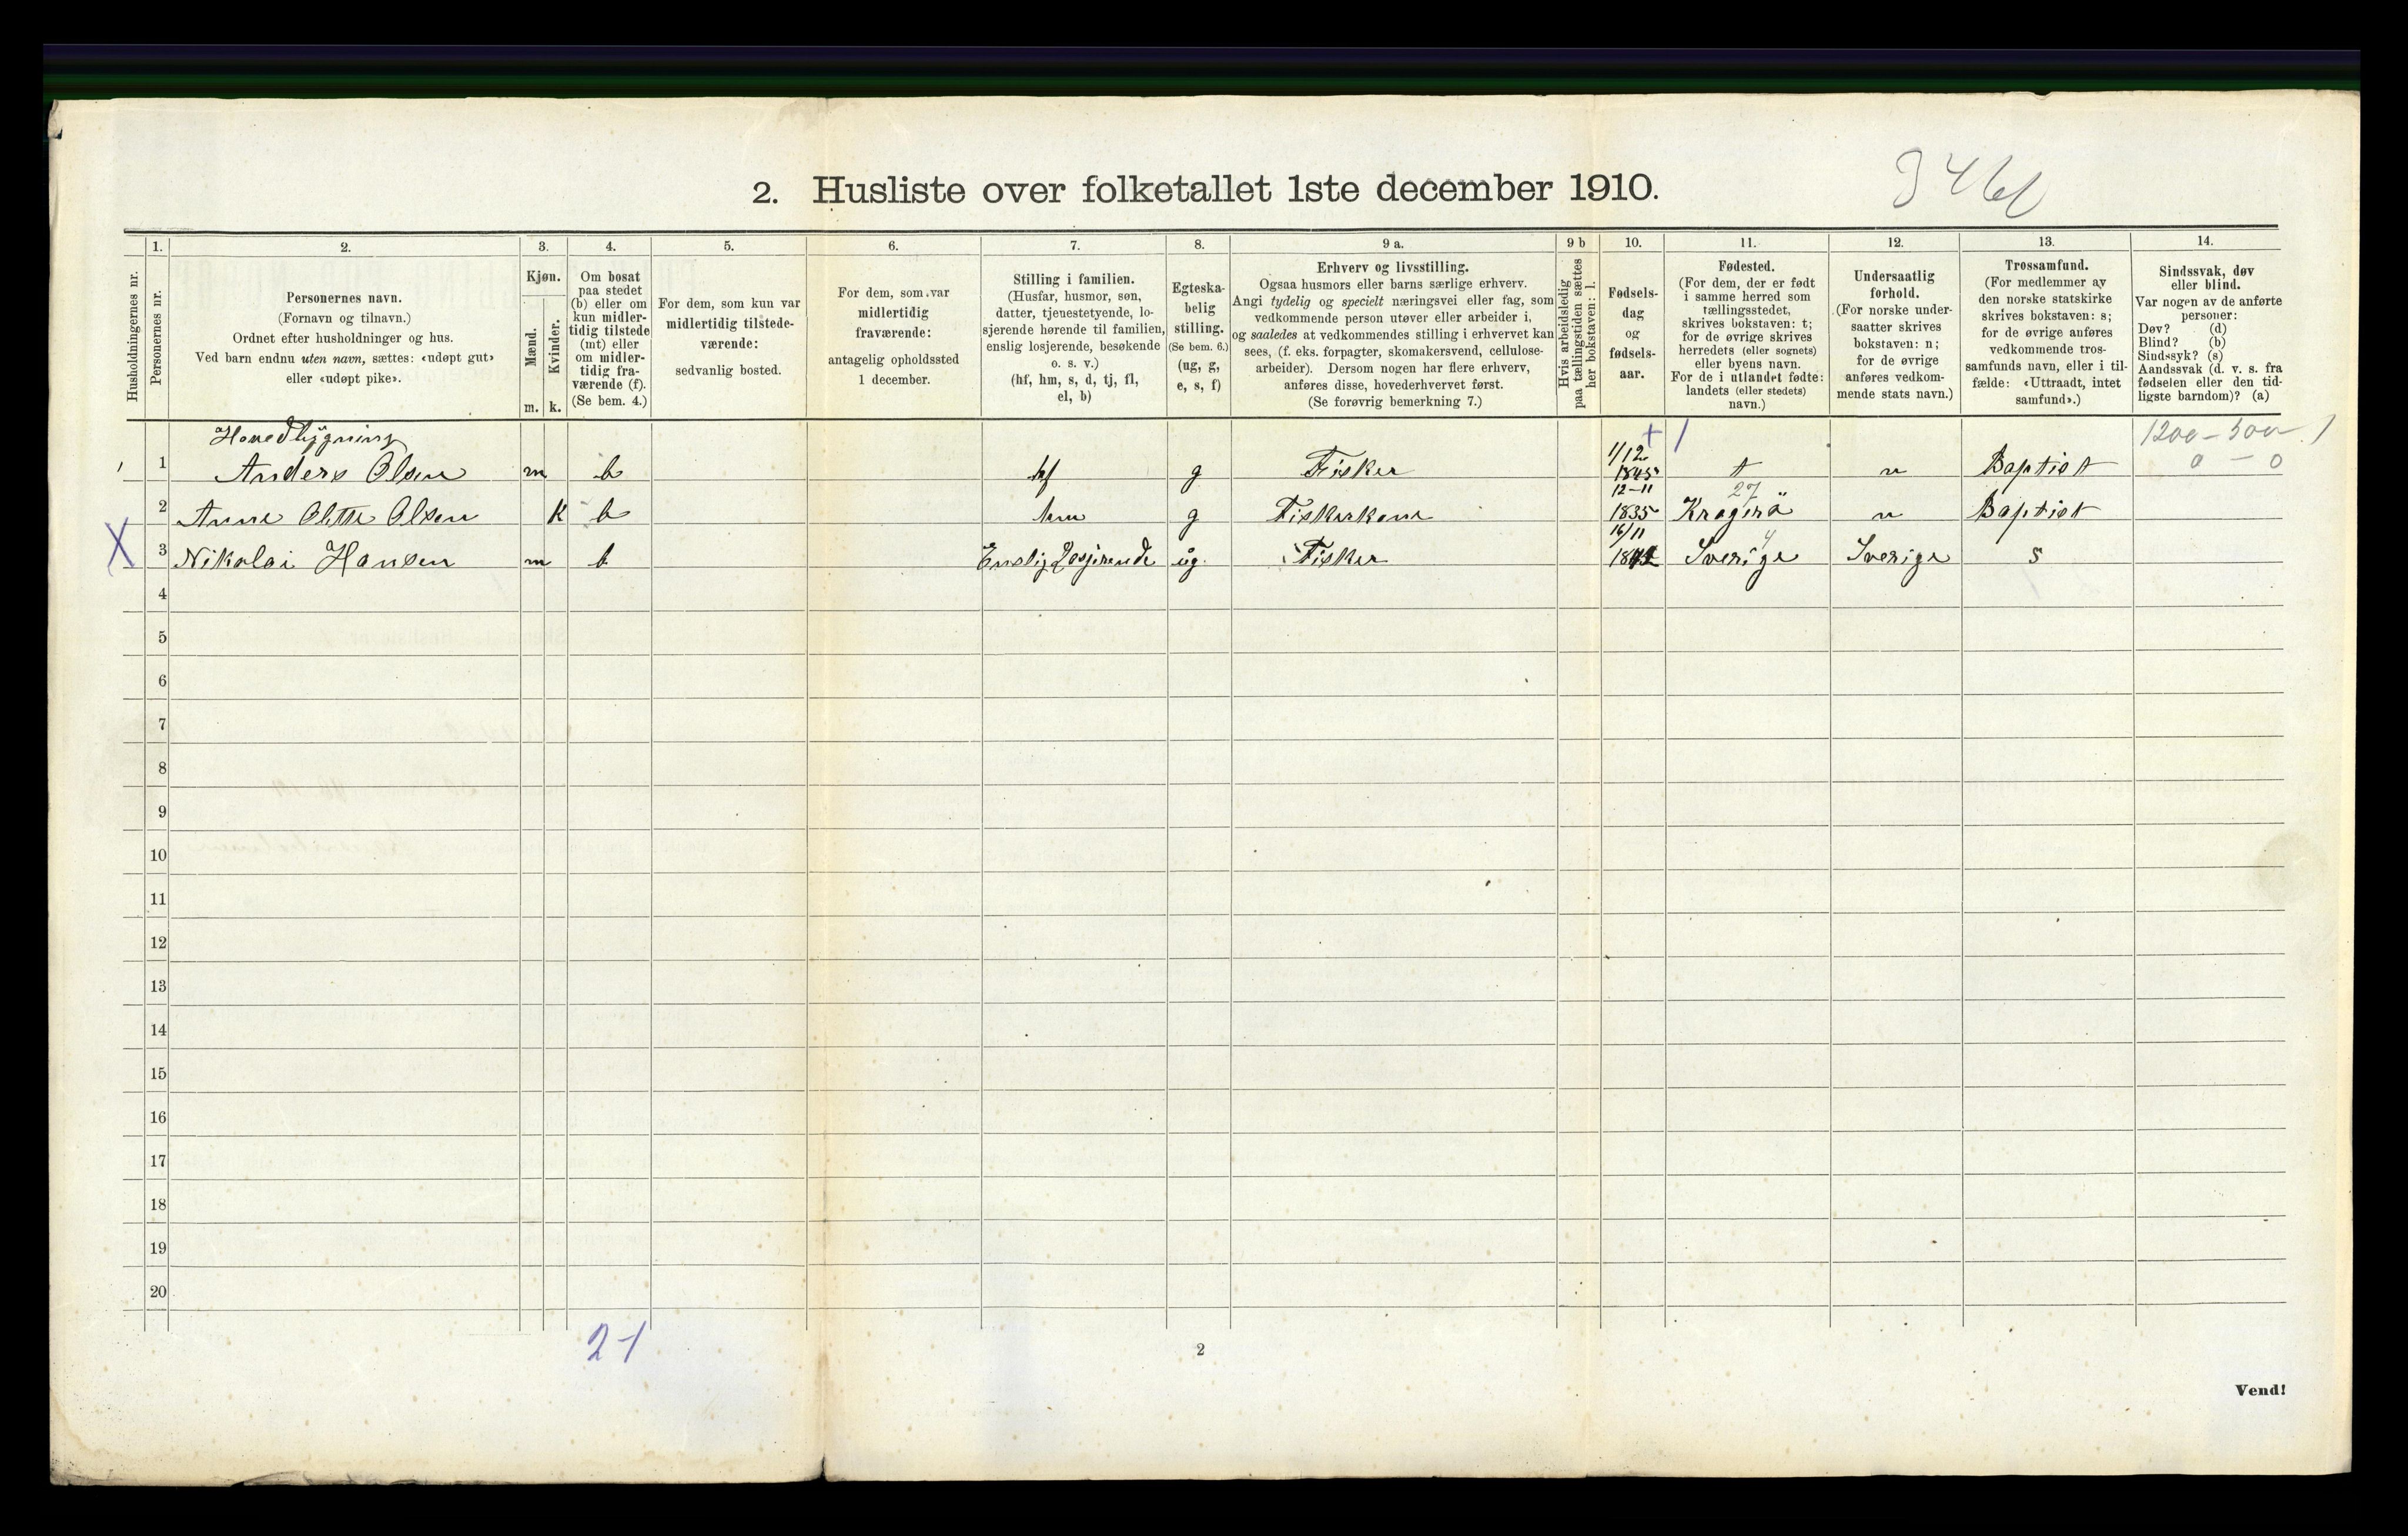 2. Husliste over folketallet 1ste december 1910.
Husholdningernes nr.
1.
Personernes nr.
2.
Personernes navn.
(Fornavn og tilnavn.)
Ordnet efter husholdninger og hus.
Ved barn endnu uten navn, sættes: «udøpt gut»
eller «udøpt pike».
3.
Kjøn.
Mænd.
Kvinder.
m. k.
4.
Om bosat
paa stedet
(b) eller om
kun midler-
tidig tilstede
(mt) eller
om midler-
tidig fra-
værende (f).
(Se bem. 4.)
5.
For dem, som kun var
midlertidig tilstede-
værende:
sedvanlig bosted.
6.
For dem, som var
midlertidig
fraværende:
antagelig opholdssted
1 december.
7.
Stilling i familien.
(Husfar, husmor, søn,
datter, tjenestetyende, lo-
sjerende hørende til familien,
enslig losjerende, besøkende
o. s. v.)
(hf, hm, s, d, tj, fl,
el, b)
8.
Egteska-
belig
stilling.
(Se bem. 6.)
(ug, g,
e, s, f)
9 a.
Erhverv og livsstilling.
Ogsaa husmors eller barns særlige erhverv.
Angi tydelig og specielt næringsvei eller fag, som
vedkommende person utøver eller arbeider i,
og saaledes at vedkommendes stilling i erhvervet kan
sees, (f. eks. forpagter, skomakersvend, cellulose-
arbeider). Dersom nogen har flere erhverv,
anføres disse, hovederhvervet først.
(Se forøvrig bemerkning 7.)
9 b
Hvis arbeidsledig
paa tællingstiden sættes
her bokstaven: l.
10.
Fødsels-
dag
og
fødsels-
aar.
11.
Fødested.
(For dem, der er født
i samme herred som
tællingsstedet,
skrives bokstaven: t;
for de øvrige skrives
herredets (eller sognets)
eller byens navn.
For de i utlandet fødte:
landets (eller stedets)
navn.)
12.
Undersaatlig
forhold.
(For norske under-
saatter skrives
bokstaven: n;
for de øvrige
anføres vedkom-
mende stats navn.)
13.
Trossamfund.
(For medlemmer av
den norske statskirke
skrives bokstaven: s;
for de øvrige anføres
vedkommende tros-
samfunds navn, eller i til-
fælde: «Uttraadt, intet
samfund».)
14.
Sindssvak, døv
eller blind.
Var nogen av de anførte
personer:
Døv? (d)
Blind? (b)
Sindssyk? (s)
Aandssvak (d. v. s. fra
fødselen eller den tid-
ligste barndom)? (a)
Hovedbygning 1200 – 500 1
1 Anders Olsen m b hf g Fisker 1/12 1845 t n Baptist 0 – 0
2 Anne Olette Olsen K b hm g Fiskerkone 12–11 1835 27 Kragerø n Baptist
X 3 Nikolai Hansen m b Enslig Losjerende ug Fisker 16/11 4 Sverige Sverige s
4
5
6
7
8
9
10
11
12
13
14
15
16
17
18
19
20
2–1
2
Vend!